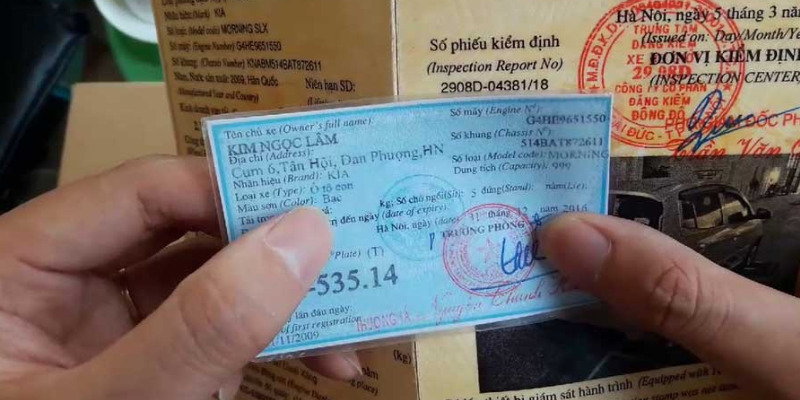 Nhãn hiệu: (Mark) KIA
Số loại: (Model code) MORNING SLX
Số máy: (Engine Number) G4HE9651550
Số khung: (Chassis Number) KNABM514BAT872611
Năm, Nước sản xuất: 2009, Hàn Quốc
(Manufactured Year and Country)
Niên hạn SD:
Số phiếu kiểm định
(Inspection Report No)
2908D-04381/18
Hà Nội, ngày 5 tháng 3 năm
(Issued on: Day/Month/
ĐƠN VỊ KIỂM ĐỊNH
(INSPECTION CENTER)
TRUNG TÂM
ĐĂNG KIỂM
XE
29.08D
CÔNG TY CỔ PHẦN
ĐĂNG KIỂM
ĐÔNG ĐÔ
Tên chủ xe (Owner's full name):
KIM NGỌC LÂM
Địa chỉ (Address):
Cụm 6, Tân Hội, Đan Phượng, HN
Nhãn hiệu (Brand): KIA
Loại xe (Type): Ô tô con
Màu sơn (Color): Bạc
Số máy (Engine N°):
G4HE9651550
Số khung (Chassis N°)
514BAT872611
Số loại (Model code): MORNING
Dung tích (Capacity): 999
kg; Số chỗ ngồi(Sit): 5 đứng(Stand): nằm(Lie):
trị đến ngày (date of expiry)
Hà Nội, ngày (date) 12 năm 2016
TRƯỞNG PHÒNG
Plate) (T)
-535.14
lần đầu ngày:
of first registration
/11/2009
(kg)
thiết bị giám sát hành trình (Equipped with